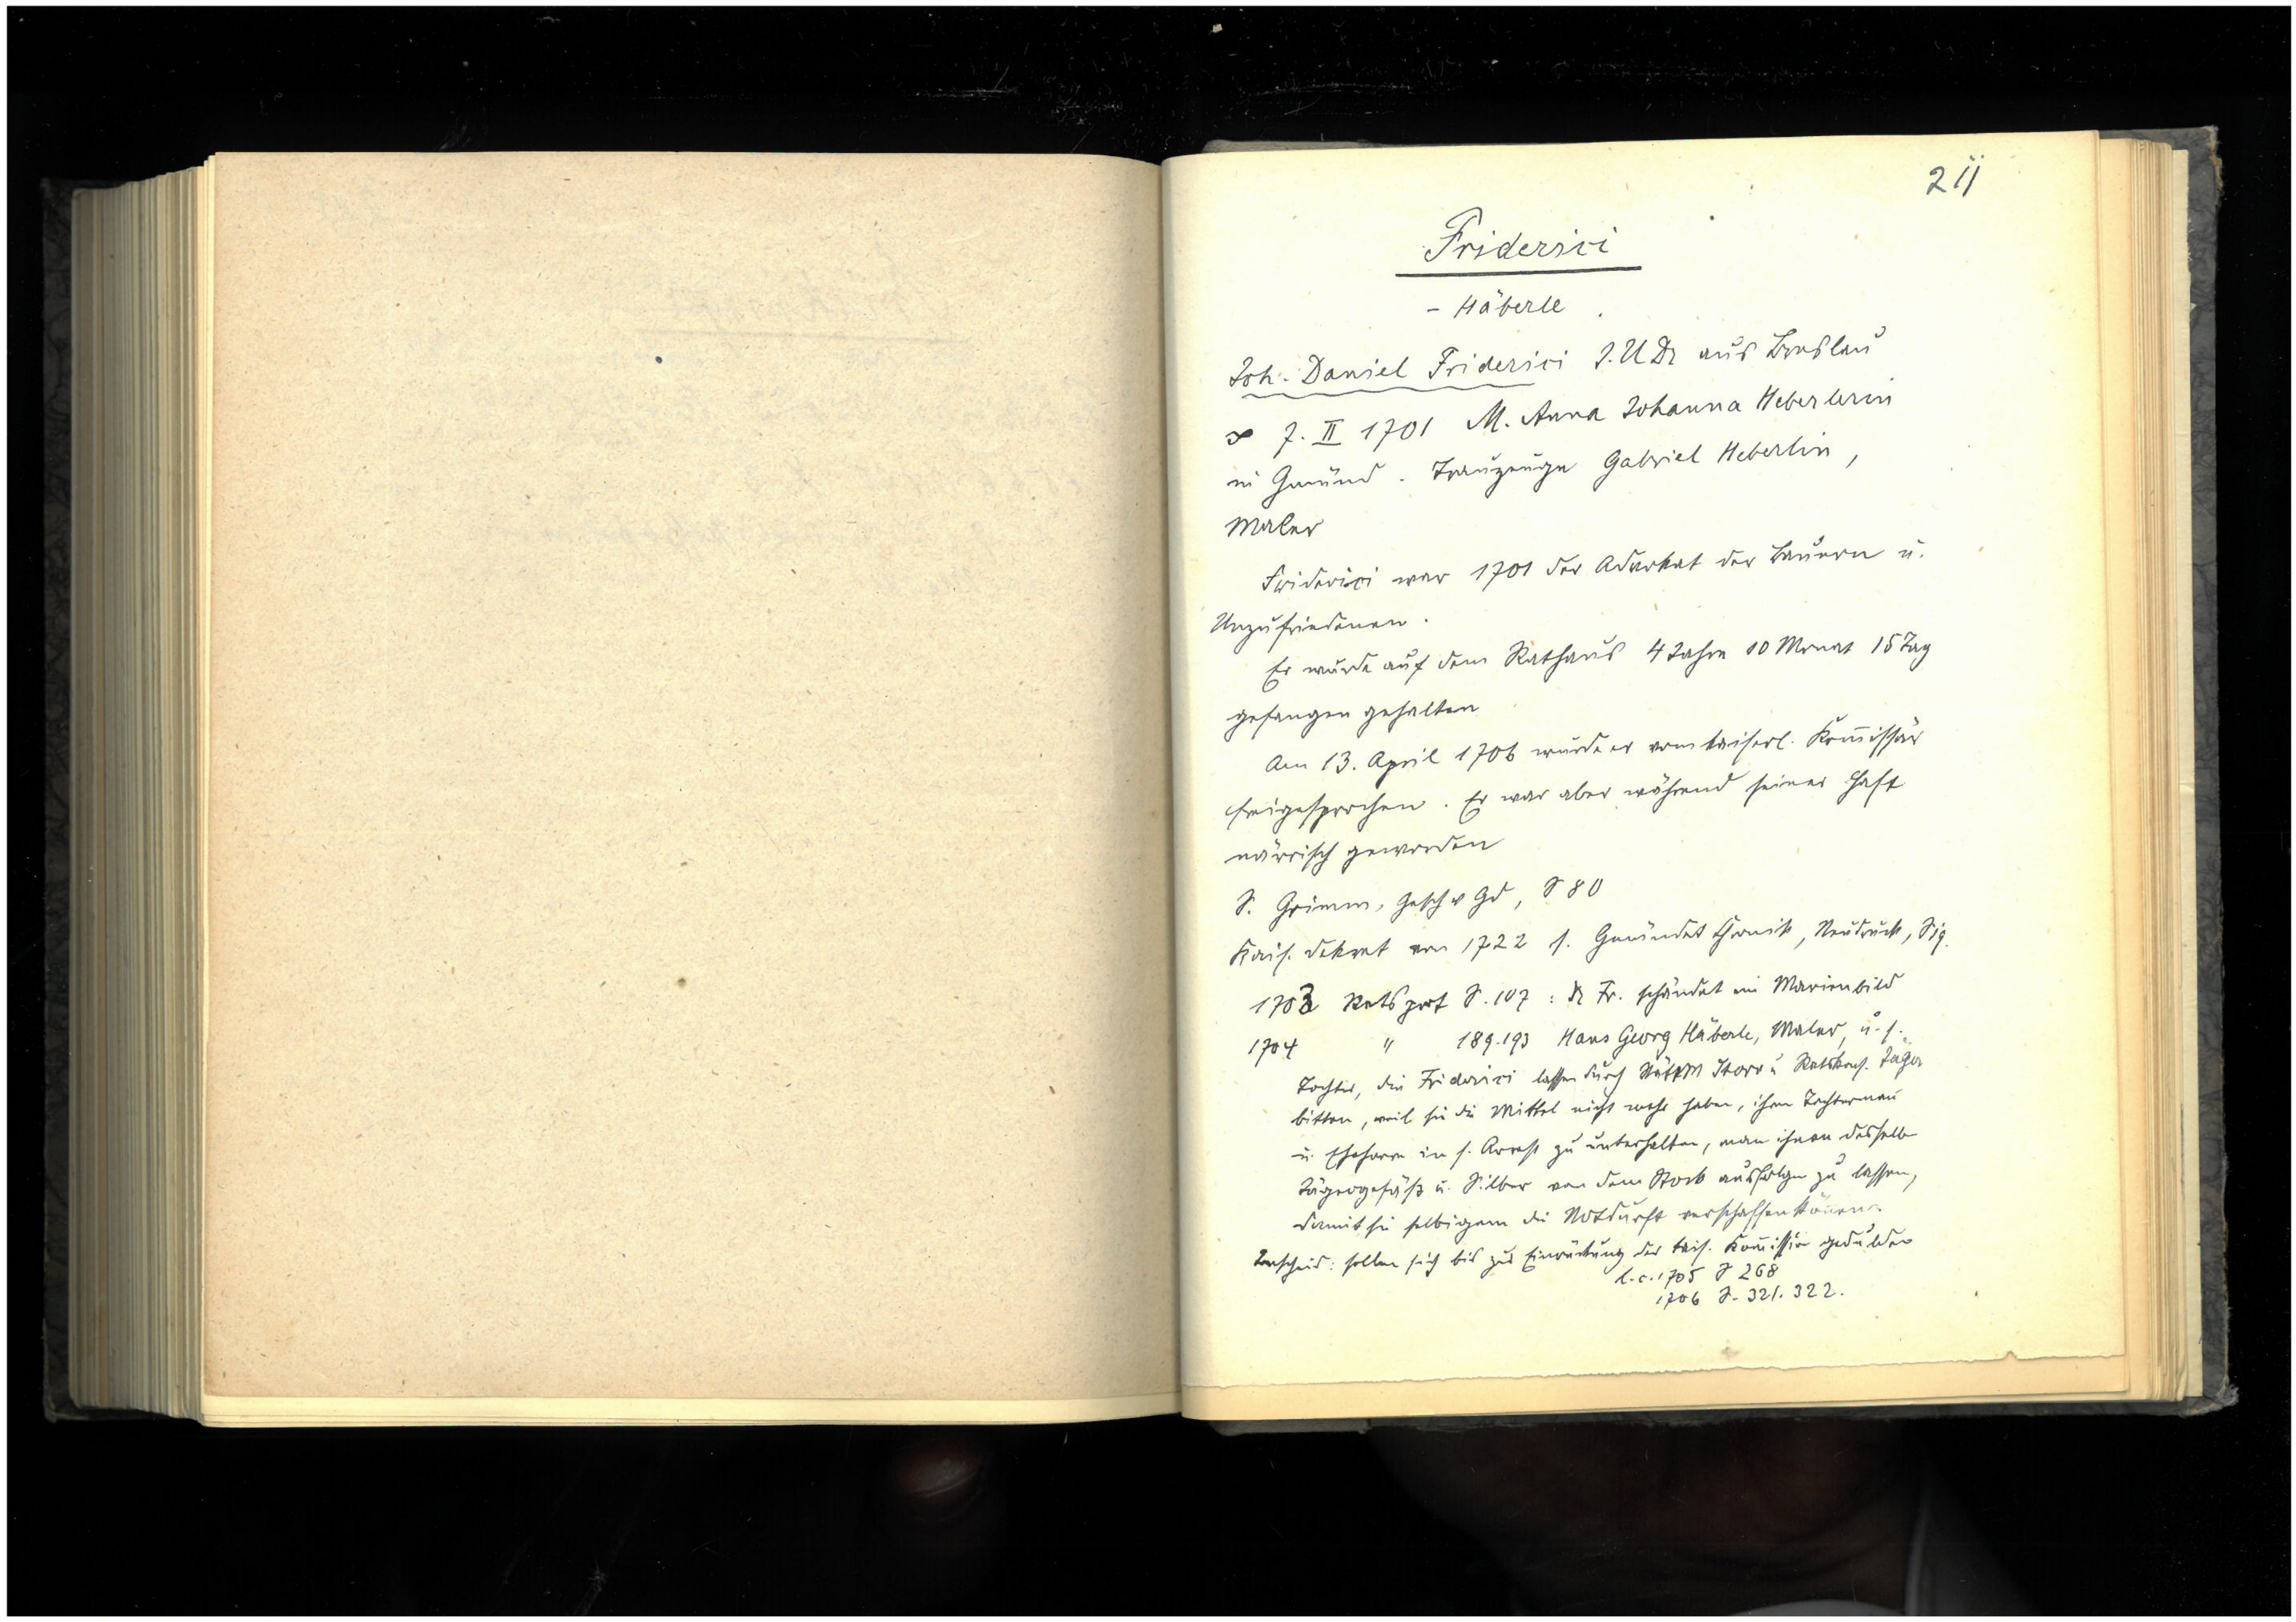 211
Friderici
- Häberle
Joh. Daniel Friderici J. U Dr aus Breslau
∞ 7. II 1701 M. Anna Johanna Heberlerin
in Gmünd. Trauzeuge Gabriel Heberlin,
Maler
Friderici war 1701 der Advokat der Bauern u.
Unzufriedenen.
Er wurde auf dem Rathaus 4 Jahre 10 Monat 15 Tag
gefangen gehalten
Am 13. April 1706 wurde er vom kaiserl. Kom̄issär
freigesprochen. Er war aber während seiner Haft
närrisch geworden
S. Grimm, Gesch v Gd, S 80
Kais. Dekret von 1722 s. Gmünder Chronik, Neudruck,
1703 Ratsprot S. 107 : Dr Fr. schändet ein Marienbild
1704 " 189-193 Hans Georg Häberle, Maler, u. s.
Tochter, die Friderici lassen durch Stättm Storr u Ratskons. Jäger
bitten, weil sie die Mittel nicht mehr haben, ihren Tochterman
u. Eheherrn in s. Arrest zu unterhalten, man ihnen desselb
u. Silber von dem Stock ausfolgen zu lassen,
damit sie selbigem die Notdurft verschaffen kön̄en.
Bescheid: sollen sich bis zur Einrückung der kais. Kom̄ission gedulden
l. c. 1705 S 268
1706 S. 321. 322.